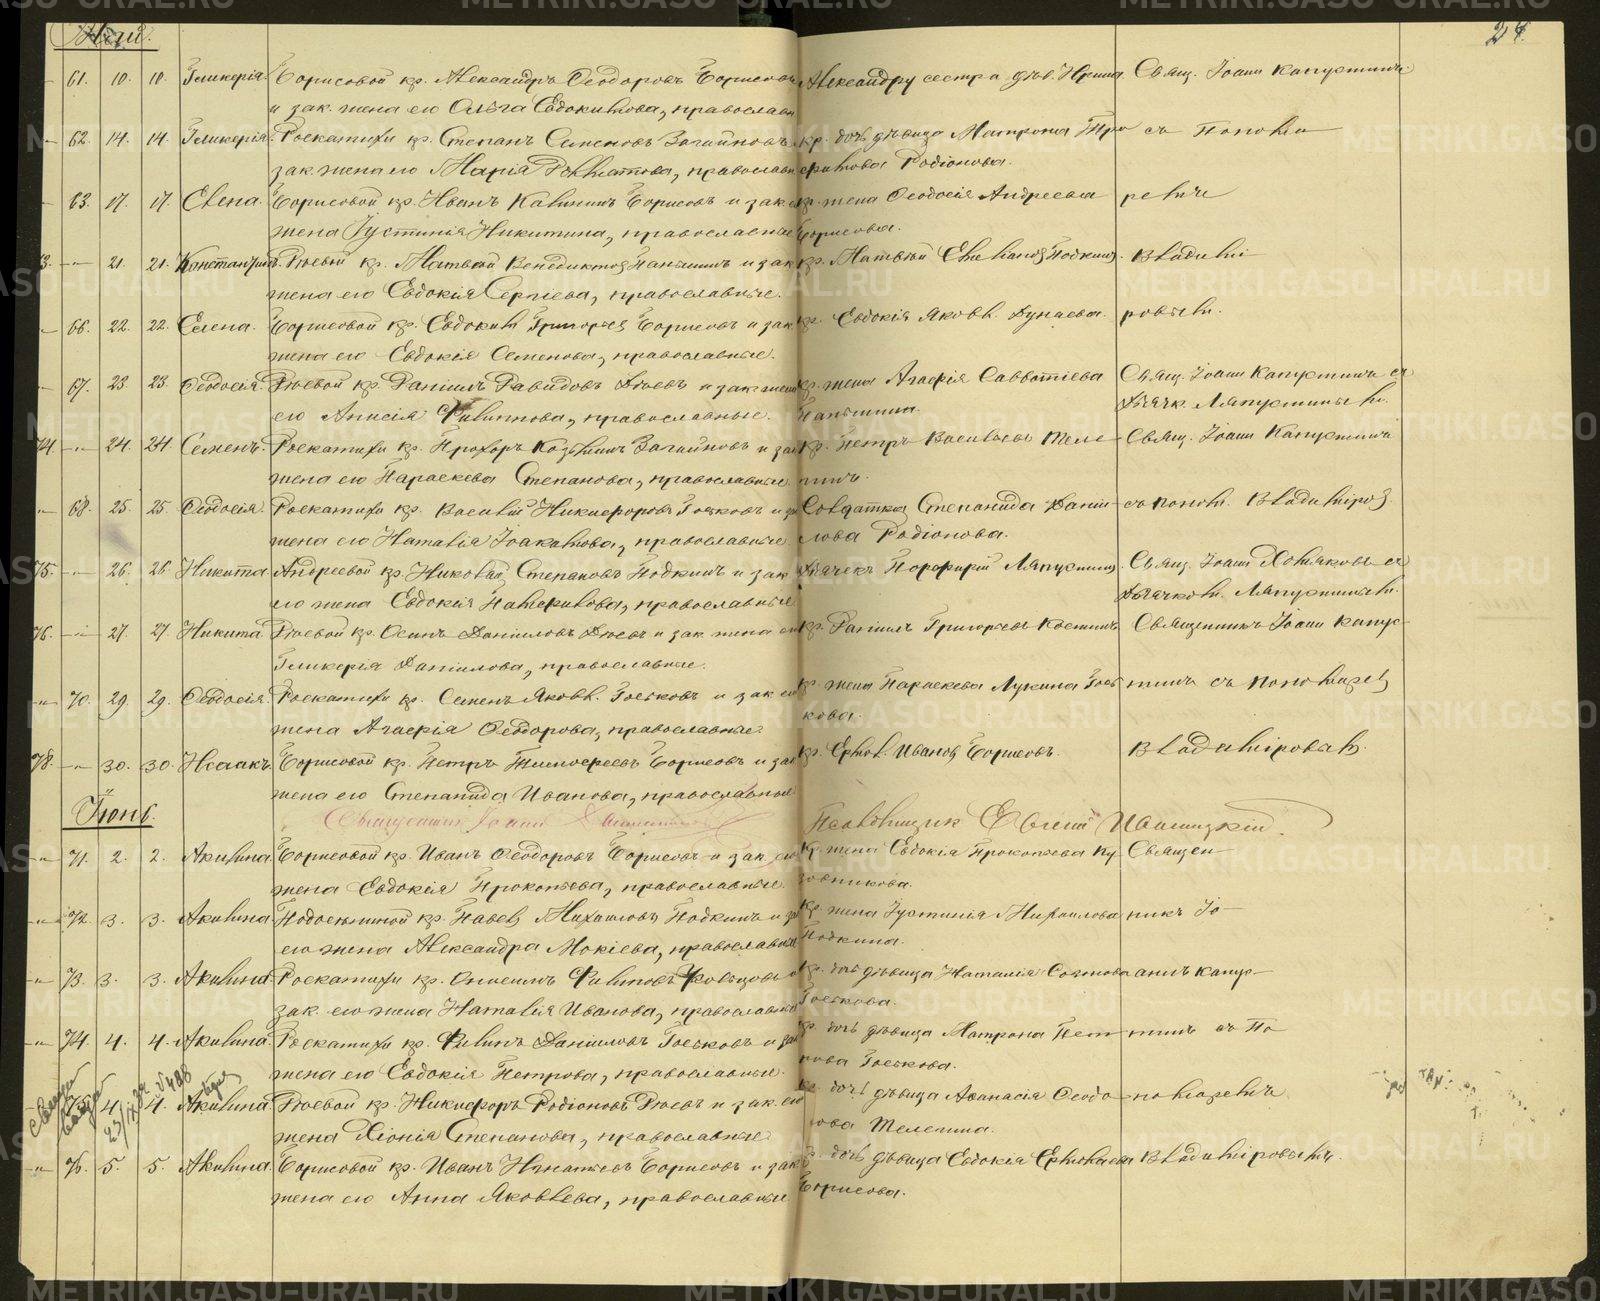 Май.
61. 10. 10. Гликерія Борисовой кр. Александръ Ѳеодоровъ Борисовъ Александру сестра дѣв. Ирина Свящ. Іоаннъ Капустинъ
и зак. жена его Ольга Евдокимова, православн
62. 14. 14. Гликерія. Роскатихи кр. Степанъ Семеновъ Загайновъ кр. дочь дѣвица Матрона съ Поно
зак. жена его Марія, православн Родіонова.
63. 17. 17. Елена. Борисовой кр. Иванъ Калининъ Борисовъ и зак. кр. жена Ѳеодосія Андреева
жена Іустинія Никитина, православные Борисова.
73. -„- 21. 21. Константинъ. кр. Матвѣй Венедиктов и зак. кр. Матвѣй Владимі
жена его Евдокія Сергіева, православные.
-„- 66. 22. 22. Елена. Борисовой кр. Евдокимъ Григорьев Борисовъ и зак. кр. Евдокія Яковл. Дунаева.
жена его Евдокія Семенова, православные.
-„- 67. 23. 23. Ѳеодосія. кр. Даніилъ Давидовъ и зак. жена кр. жена Агафія Савватіева Свящ. Іоаннъ Капустинъ съ
его Анисія Филиппова, православные. Дьячк. Ляпустинымъ.
74. -„- 24. 24. Семенъ. Роскатихи кр. Прохоръ Козьминъ Загайновъ и зак. кр. Петръ Васильевъ Теле- Свящ. Іоаннъ Капустинъ
жена его Параскева Степанова, православные. гинъ.
-„- 68. 25. 25. Ѳеодосія. Роскатихи кр. Василій Никифоровъ Госьковъ и зак Солдатка Степанида Даніи- съ поном. Владиміров.
жена его Наталія Іоакимова, православные. лова Родіонова.
75. -„- 26. 26. Никита. Андреевой кр. Николай Степановъ Подкинъ и зак. Дьячекъ Порфирій Ляпустинъ. Свящ. Іоаннъ Хомяковъ съ
его жена Евдокія Памфилова, православные. Дьячком. Ляпустинымъ.
76. -„- 27. 27. Никита. кр. Осипъ Даніиловъ и зак. жена его кр. Даніилъ Григорьевъ Костинъ Священникъ Іоаннъ Капус-
Гликерія Даніилова, православные.
-„- 70. 29. 29. Ѳеодосія. Роскатихи кр. Семенъ Яковл. Госьковъ и зак. его кр. жена Параскева Лукина Гось- тинъ съ пономарем
жена Агафія Ѳеодорова, православные. кова.
78. -„- 30. 30. Исаакъ. Борисовой кр. Петръ Тимоѳеевъ Борисовъ и зак кр. Ермол. Иванов Борисовъ. Владиміровым.
жена его Степанида Иванова, православные.
Священникъ Іоаннъ Псаломщик Евгеній
Іюнь.
-„- 71. 2. 2. Акилина. Борисовой кр. Иванъ Ѳеодоровъ Борисовъ и зак. его кр. жена Евдокія Прокопьева Пу- Священ-
жена Евдокія Прокопьева, православные. зовникова.
-„- 72. 3. 3. Акилина. кр. Павелъ Михаиловъ Подкинъ и зак кр. жена Іустинія Михаилова никъ Іо-
его жена Александра Мокіева, православные. Подкина.
-„- 73. 3. 3. Акилина. Роскатихи кр. Онисимъ Филиповъ и кр. дочь дѣвица Наталія аннъ Капус-
зак. его жена Наталія Иванова, православные. Госькова.
-„- 74. 4. 4. Акилина. Роскатихи кр. Филипъ Даніиловъ Госьковъ и зак кр. дочь дѣвица Матрона Пет- тинъ съ По-
жена его Евдокія Петрова, православные. рова Госькова.
75. 4. 4. Акилина. кр. Никифоръ Родіоновъ и зак. его кр. дочь дѣвица Аѳанасія Ѳеодо- номаремъ
жена Хіонія Степанова, православные. рова Телегина.
-„- 76. 5. 5. Акилина. Борисовой кр. Иванъ Игнатьевъ Борисовъ и зак. кр. дочь дѣвица Евдокія Ермолаева Владиміровымъ.
жена его Анна Яковлева, православные. Борисова.
METRIKI.GASO-URAL.RU